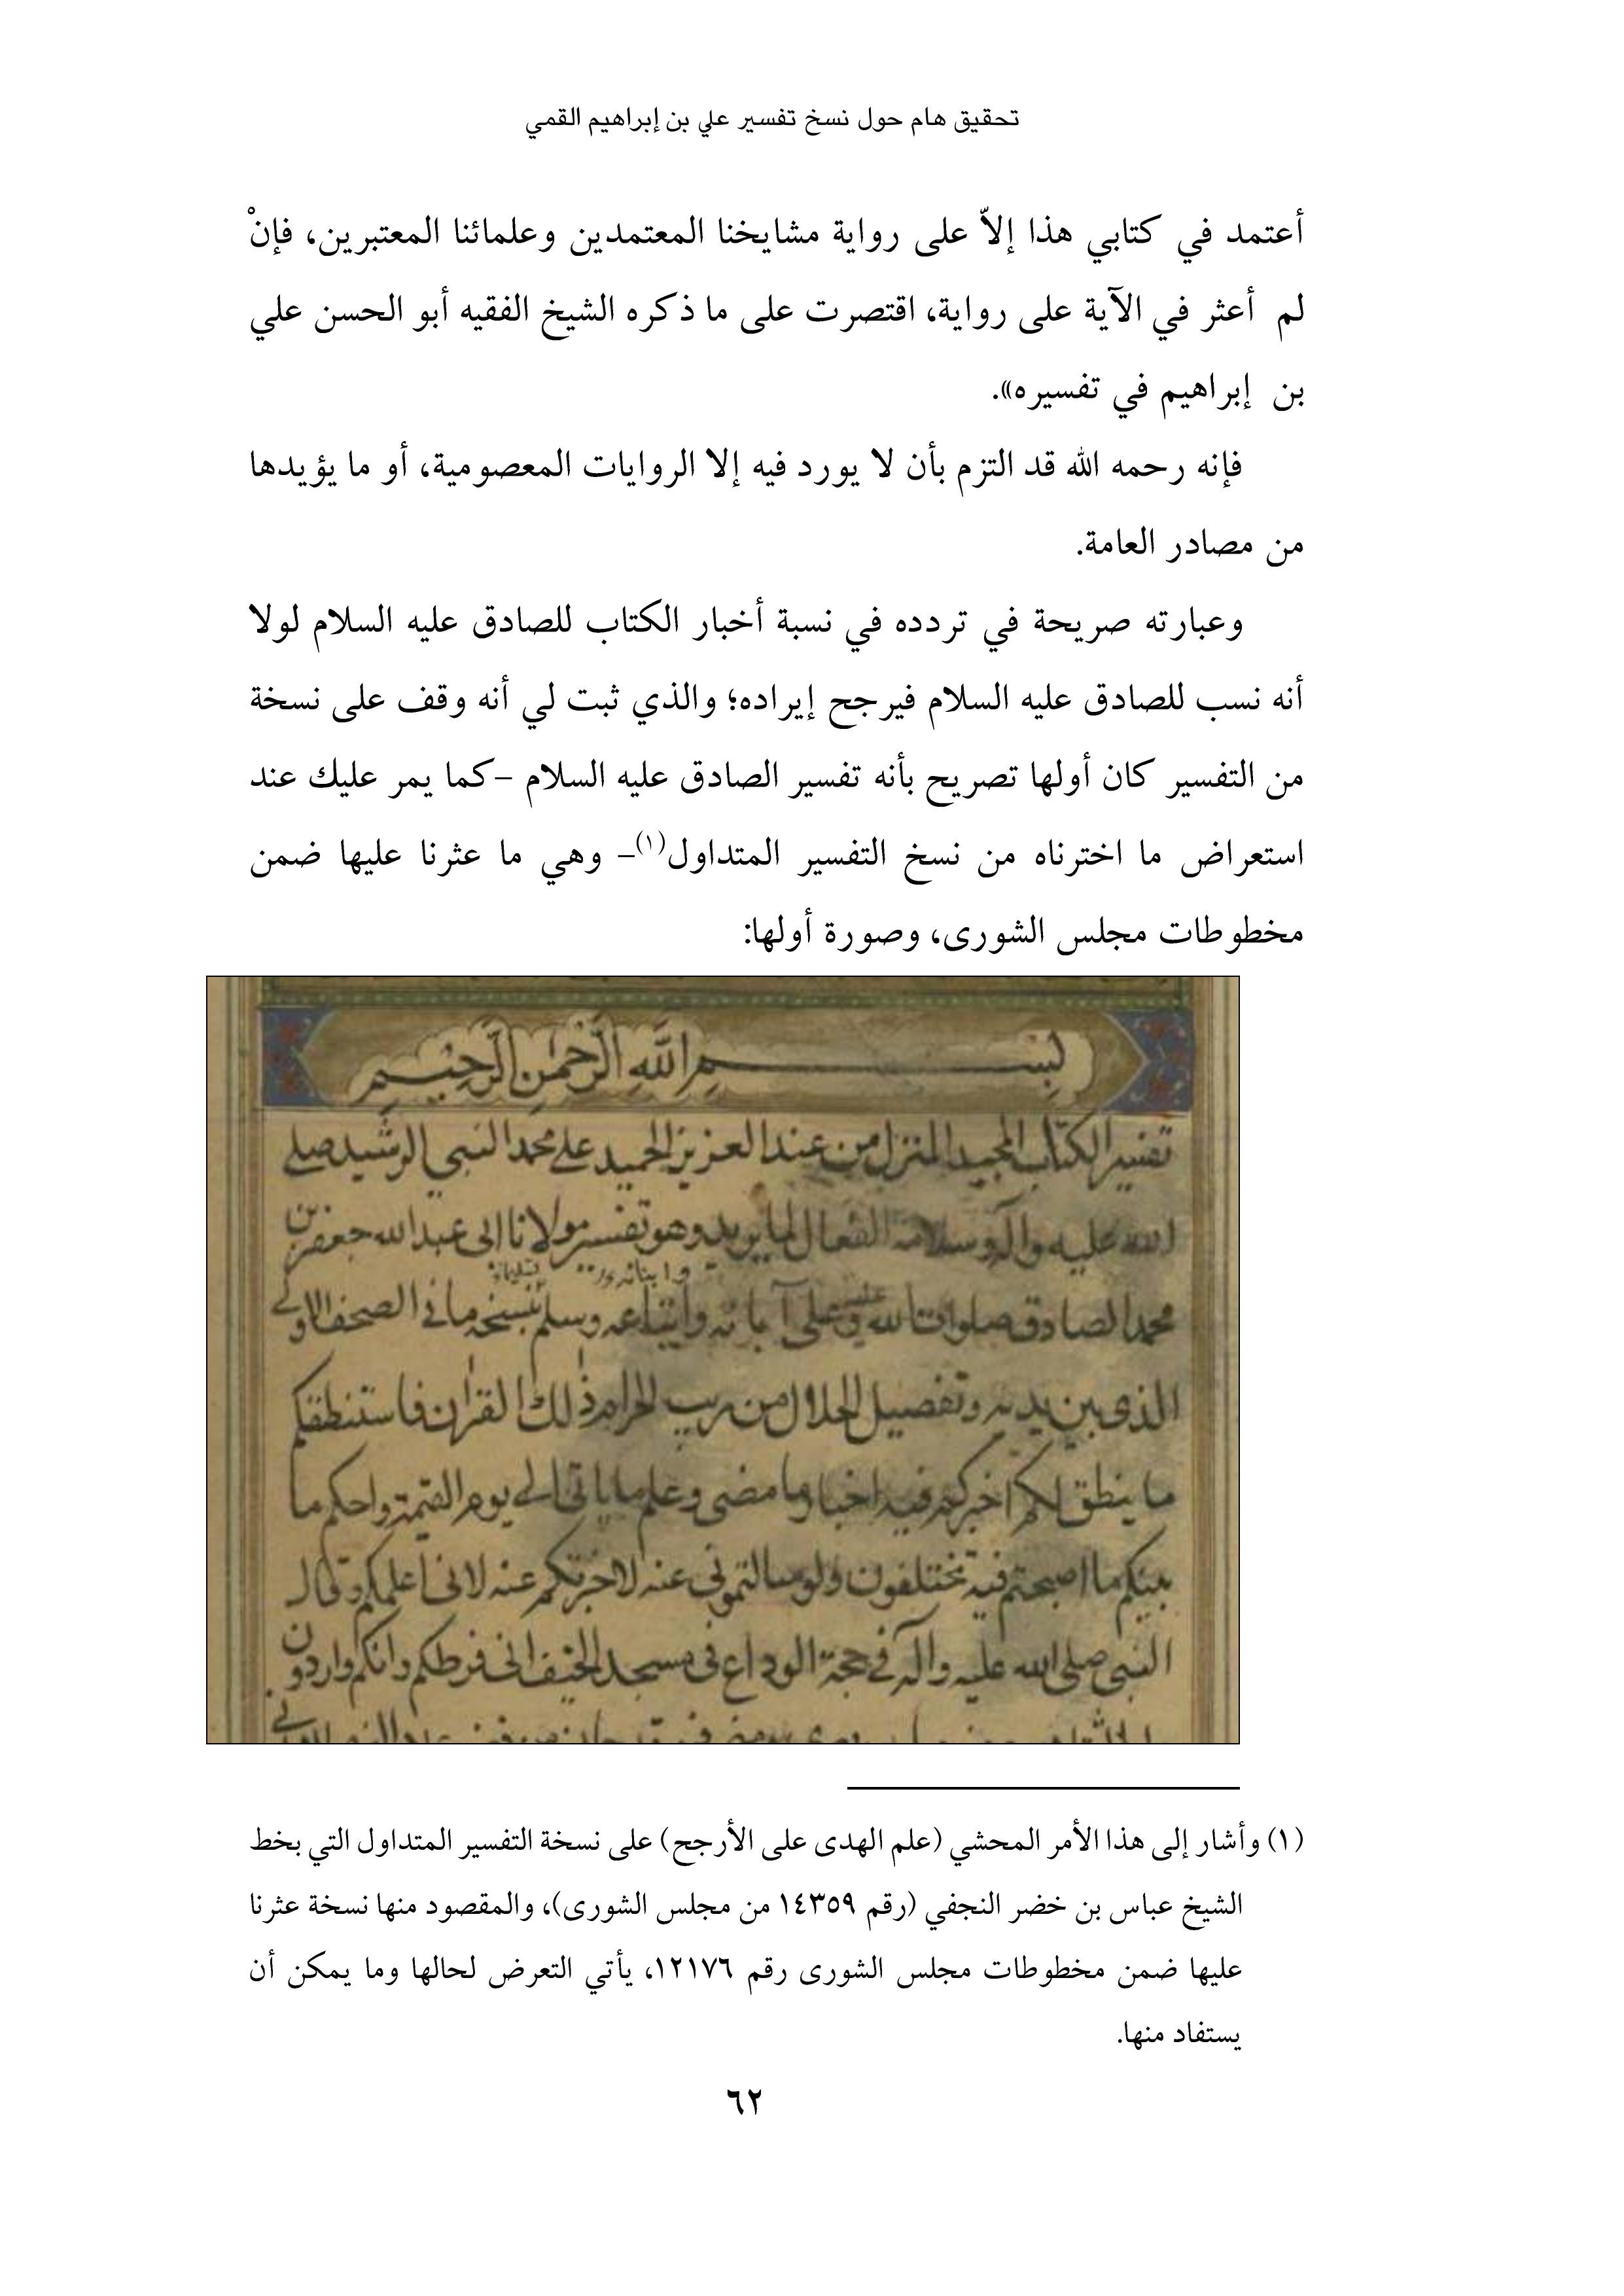 تحقيق هام حول نسخ تفسير علي بن إبراهيم القمي
أعتمد في كتابي هذا إلاّ على رواية مشايخنا المعتمدين وعلمائنا المعتبرين، فإنْ
لم أعثر في الآية على رواية، اقتصرت على ما ذكره الشيخ الفقيه أبو الحسن علي
بن إبراهيم في تفسيره».
فإنه رحمه الله قد التزم بأن لا يورد فيه إلا الروايات المعصومية، أو ما يؤيدها
من مصادر العامة.
وعبارته صريحة في تردده في نسبة أخبار الكتاب للصادق عليه السلام لولا
أنه نسب للصادق عليه السلام فيرجح إيراده؛ والذي ثبت لي أنه وقف على نسخة
من التفسير كان أولها تصريح بأنه تفسير الصادق عليه السلام –كما يمر عليك عند
استعراض ما اخترناه من نسخ التفسير المتداول(١)– وهي ما عثرنا عليها ضمن
مخطوطات مجلس الشورى، وصورة أولها:
بسم الله الرحمن الرحيم
تفسير الكتاب المجيد المنزل من عند العزيز الحميد على محمد النبي الرشيد صلى
الله عليه وآله وسلامه الفعال لما يريد وهو تفسير مولانا ابى عبد الله جعفر بن
محمد الصادق صلوات الله عليه وعلى آبائه واتباعه وسلم بنسخة ما فى الصحف الاولى
الذى بين يديه وتفصيل الحلال من ريب الحرام ذلك القران فاستنطقكم
ما ينطق لكم اخبركم فيه اخبار ما مضى وعلم ما ياتى الى يوم القيمة واحكم ما
بينكم ما اصبحتم فيه تختلفون ولو سالتمونى عنه لاخبرتكم عنه لانى اعلمكم وقال
النبى صلى الله عليه وآله فى حجة الوداع فى مسجد الخيف انى فرطكم وانكم واردون
(١) وأشار إلى هذا الأمر المحشي (علم الهدى على الأرجح) على نسخة التفسير المتداول التي بخط
الشيخ عباس بن خضر النجفي (رقم ١٤٣٥٩ من مجلس الشورى)، والمقصود منها نسخة عثرنا
عليها ضمن مخطوطات مجلس الشورى رقم ١٢١٧٦، يأتي التعرض لحالها وما يمكن أن
يستفاد منها.
٦٢